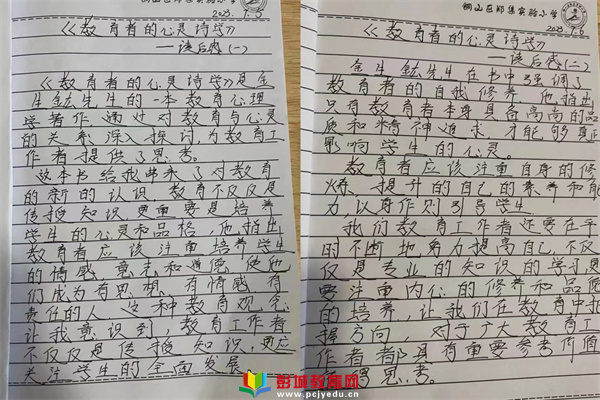 2023.9.5
《教育者的心灵诗学》
——读后感(一)
《教育者的心灵诗学》是金
生鈜先生的一本教育心理
学著作,通过对教育与心灵
的关系深入探讨,为教育工
作者提供了思考。
这本书给我带来了对教育
的新的认识,教育不仅仅是
传授知识更重要是培养
学生的心灵和品格,他指出
教育者应该注重培养学生
的情感、意志和道德,使他
们成为有思想、有情感、有
责任的人。这种教育观念
让我意识到,教育工作者
不仅仅是传授知识,更应
关注学生的全面发展。
铜山区郑集实验小学
2023.9.6
《教育者的心灵诗学》
——读后感(二)
金生鈜先生在书中强调了
教育者的自我修养,他指出
只有教育者本身具备高尚的品
质和精神追求,才能够真正
影响学生的心灵。
教育者应该注重自身的修
炼,提升的自己的素养和能
力,以身作则引导学生
我们教育工作者还要在平
时不断地努力提高自己,不仅
仅是专业的知识的学习更
要注重内心的修养和品德
的培养,让我们在教育中把
握方向,对于广大教育工
作者都具有重要参考价值
思考。
彭城教育网
www.pcjyedu.cn